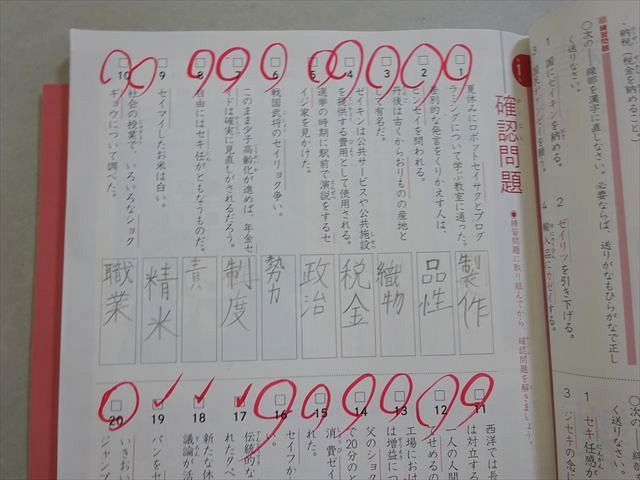 ・納税(税金を納めること)
練習問題
○次の――線部を漢字に直しなさい。必要ならば、送りがなもひらがなで正し
く送りなさい。
1 国にゼイキンを納める。
2 ゼイリツを引き下げる。
4 輸入品にカゼイする。
1 セキ任感が
3 ジセキの念に
1
確認問題
●練習問題に取り組んでから、確認問題を解きましょう。
1 夏休みにロボットセイサクとプログ
ラミングについて学ぶ教室に通った。
2 差別的な発言をくりかえす人は、
ヒンセイを問われる。
3 丹後は古くからおりものの産地と
して有名だ。
4 ゼイキンは公共サービスや公共施設
を提供する費用として使用される。
5 選挙の時期に駅前で演説をするセ
イジ家を見かけた。
6 戦国武将のセイリョク争い。
7 このまま少子高齢化が進めば、年金セ
イドは確実に見直しがされるだろう。
8 自由にはセキ任がともなうものだ。
9 セイマイしたお米は白い。
10 社会の授業で、いろいろなショク
ギョウについて調べた。
製作
品性
織物
税金
政治
勢力
制度
責
精米
職業
11 西洋では長
は対立する
12 一人の人間
でせめるの
13 工場におけ
は増益につ
14 父のショク
で20分のと
15 消費ゼイ
れた。
16 セイフか
い。
17 伝統的な
れた夕べ
18 新たな休
議論が活
19 パンをセ
20 いきおい
ジャンプ